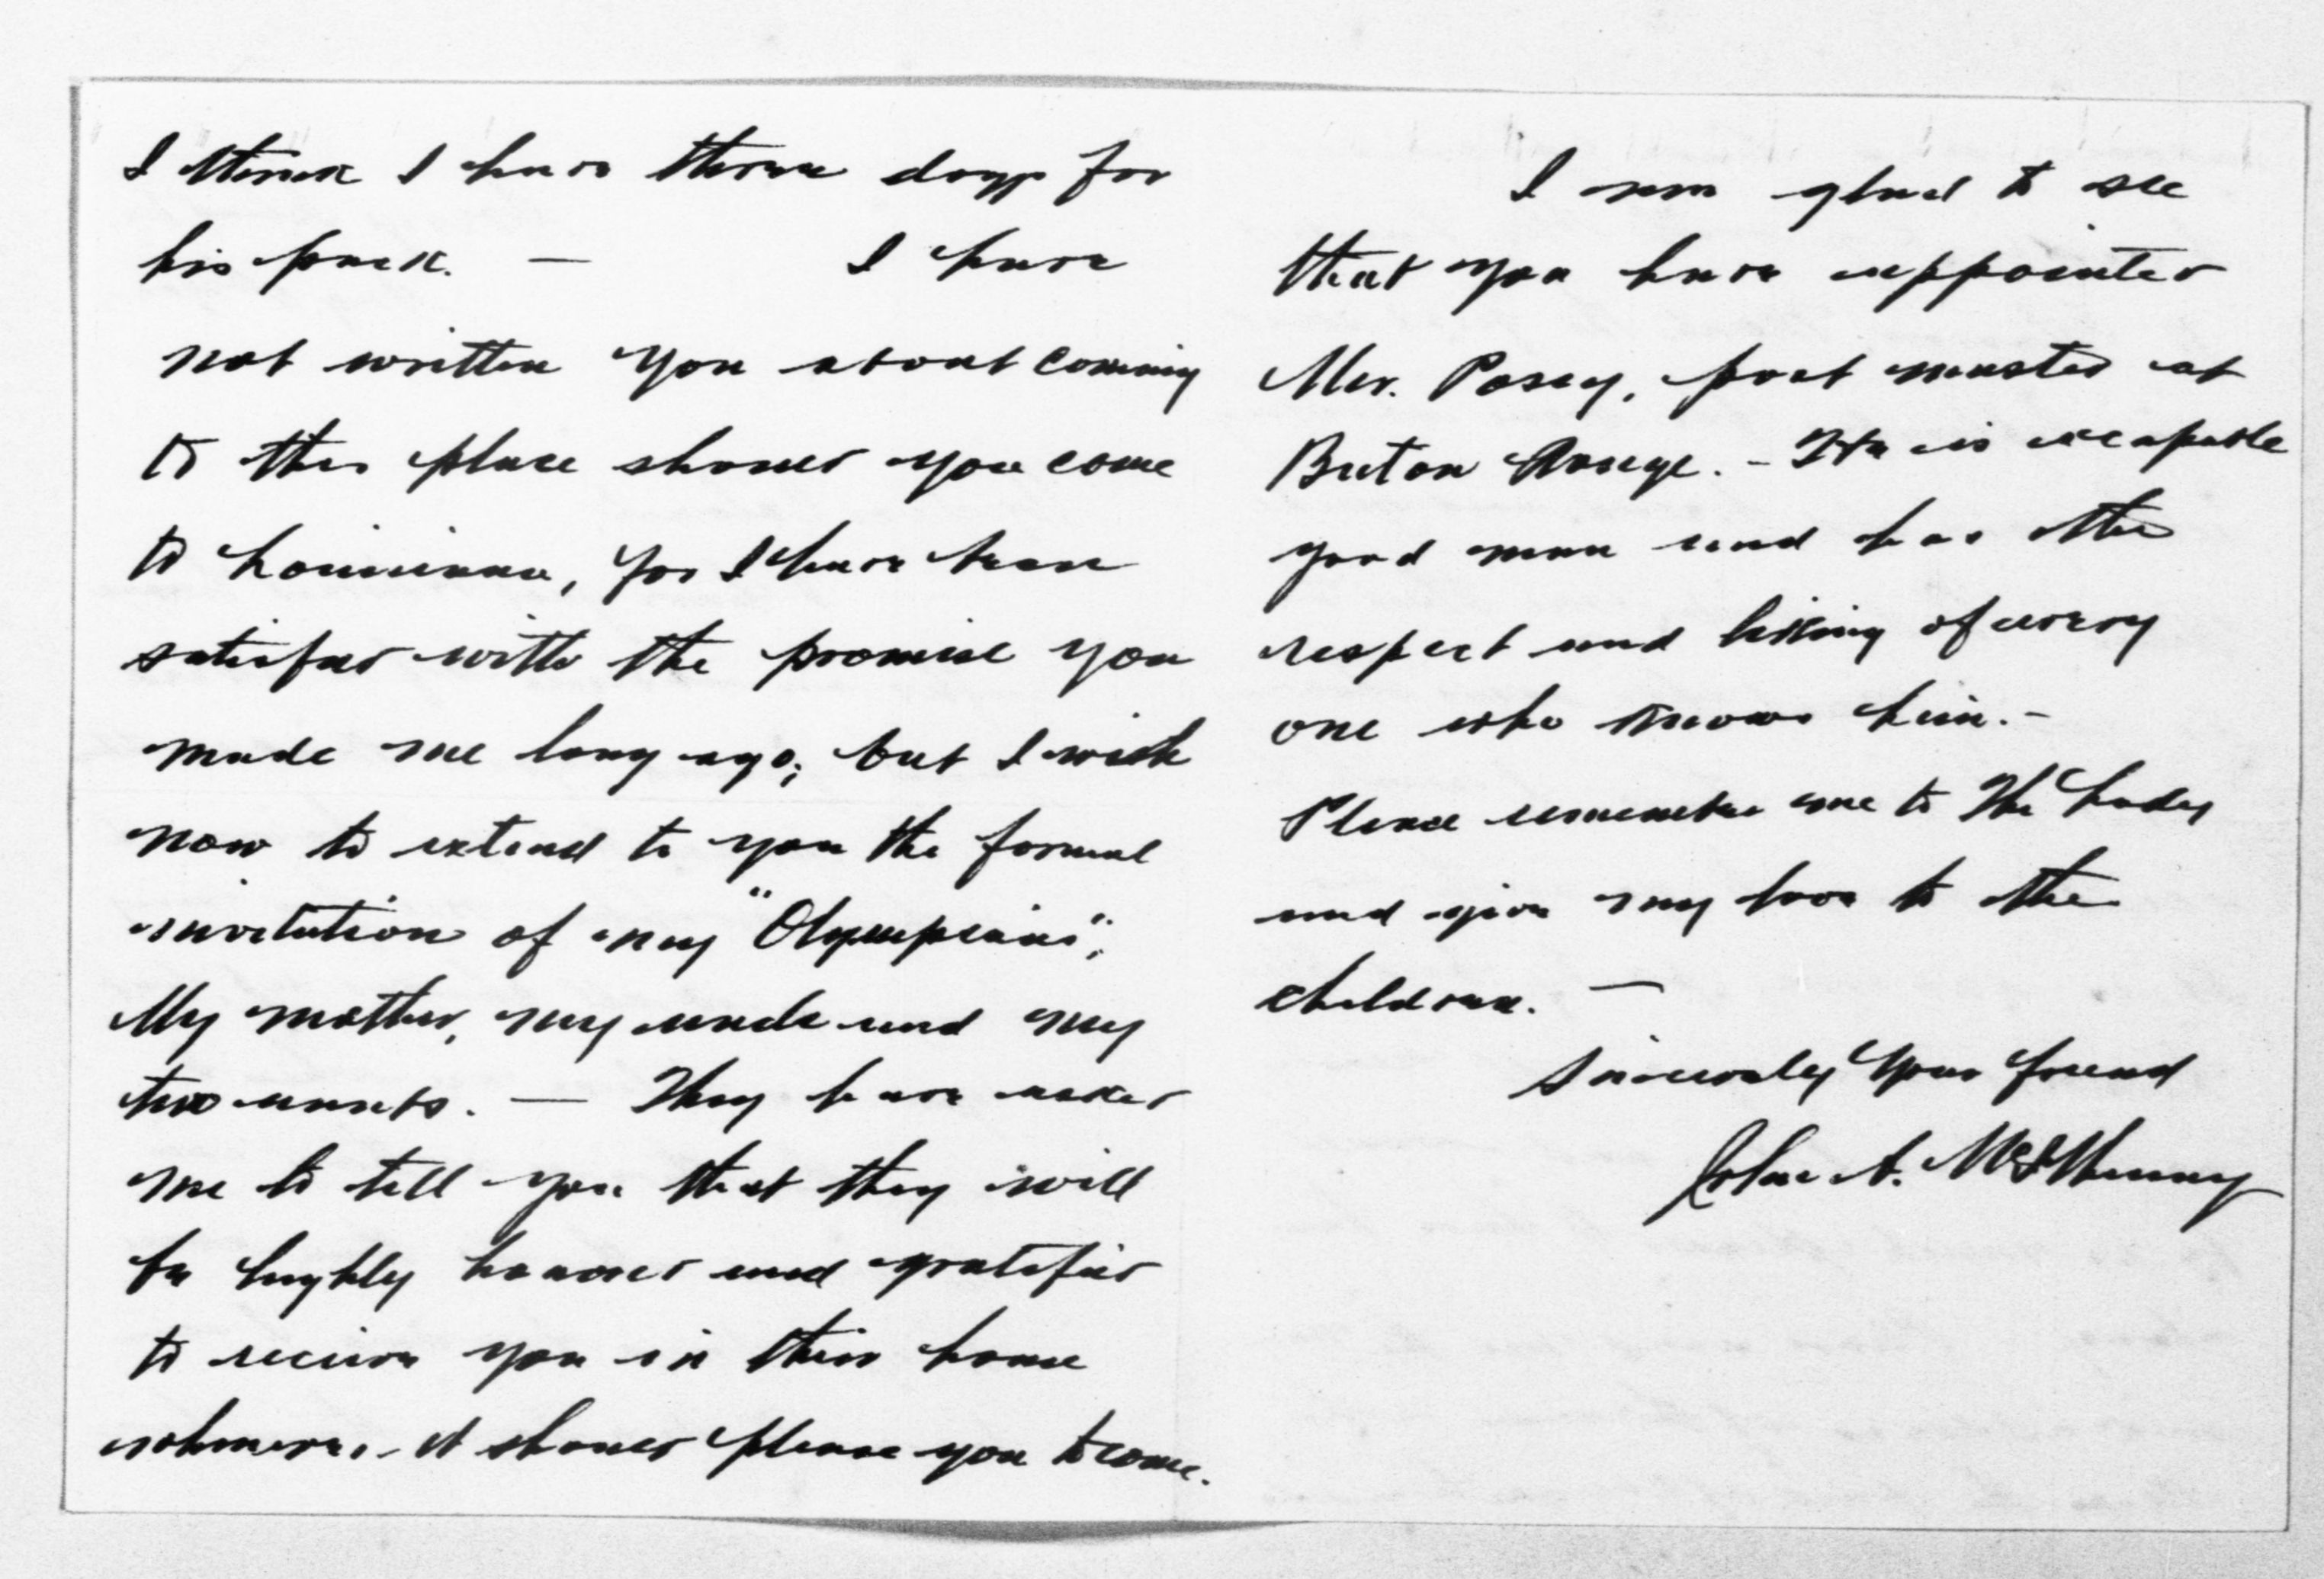 I think I have three dogs for
his pack. — I have
not written you about coming
to this place should you come
to Louisiana, for I have been
satisfied with the promise you
made me long ago; but I wish
now to extend to you the formal
invitation of my "Olympians";
My mother, my uncle and my
two aunts. — They have asked
me to tell you that they will
be highly honored and gratified
to receive you in their house
whenever it should please you to come.
I am glad to see
that you have appointed
Mr. Posey, post master at
Baton Rouge. - He is a capable
good man and has the
respect and liking of every
one who knows him. -
Please remember me to The Ladies
and give my love to the
children. —
Sincerely Your friend
John A. McIlhenny